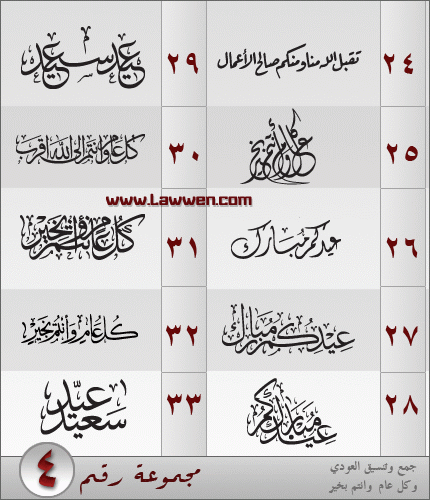 ٢٤ تقبل الله منا ومنكم صالح الأعمال
٢٥ كل عام وأنتم بخير
٢٦ عيدكم مبارك
٢٧ عِيْدُكُمْ مُبَارَكْ
٢٨ عيدكم مبارك
٢٩ عيد سعيد
٣٠ كل عام وانتم الى الله اقرب
www.Lawwen.com
٣١ كُلُّ عام وأنتم بخَيْر
٣٢ كُلُّ عَامٍ وَأَنْتُمْ بِخَيْرٍ
٣٣ عيد سعيد
٤ مجموعة رقم
جمع وتنسيق العودي
وكل عام وانتم بخير